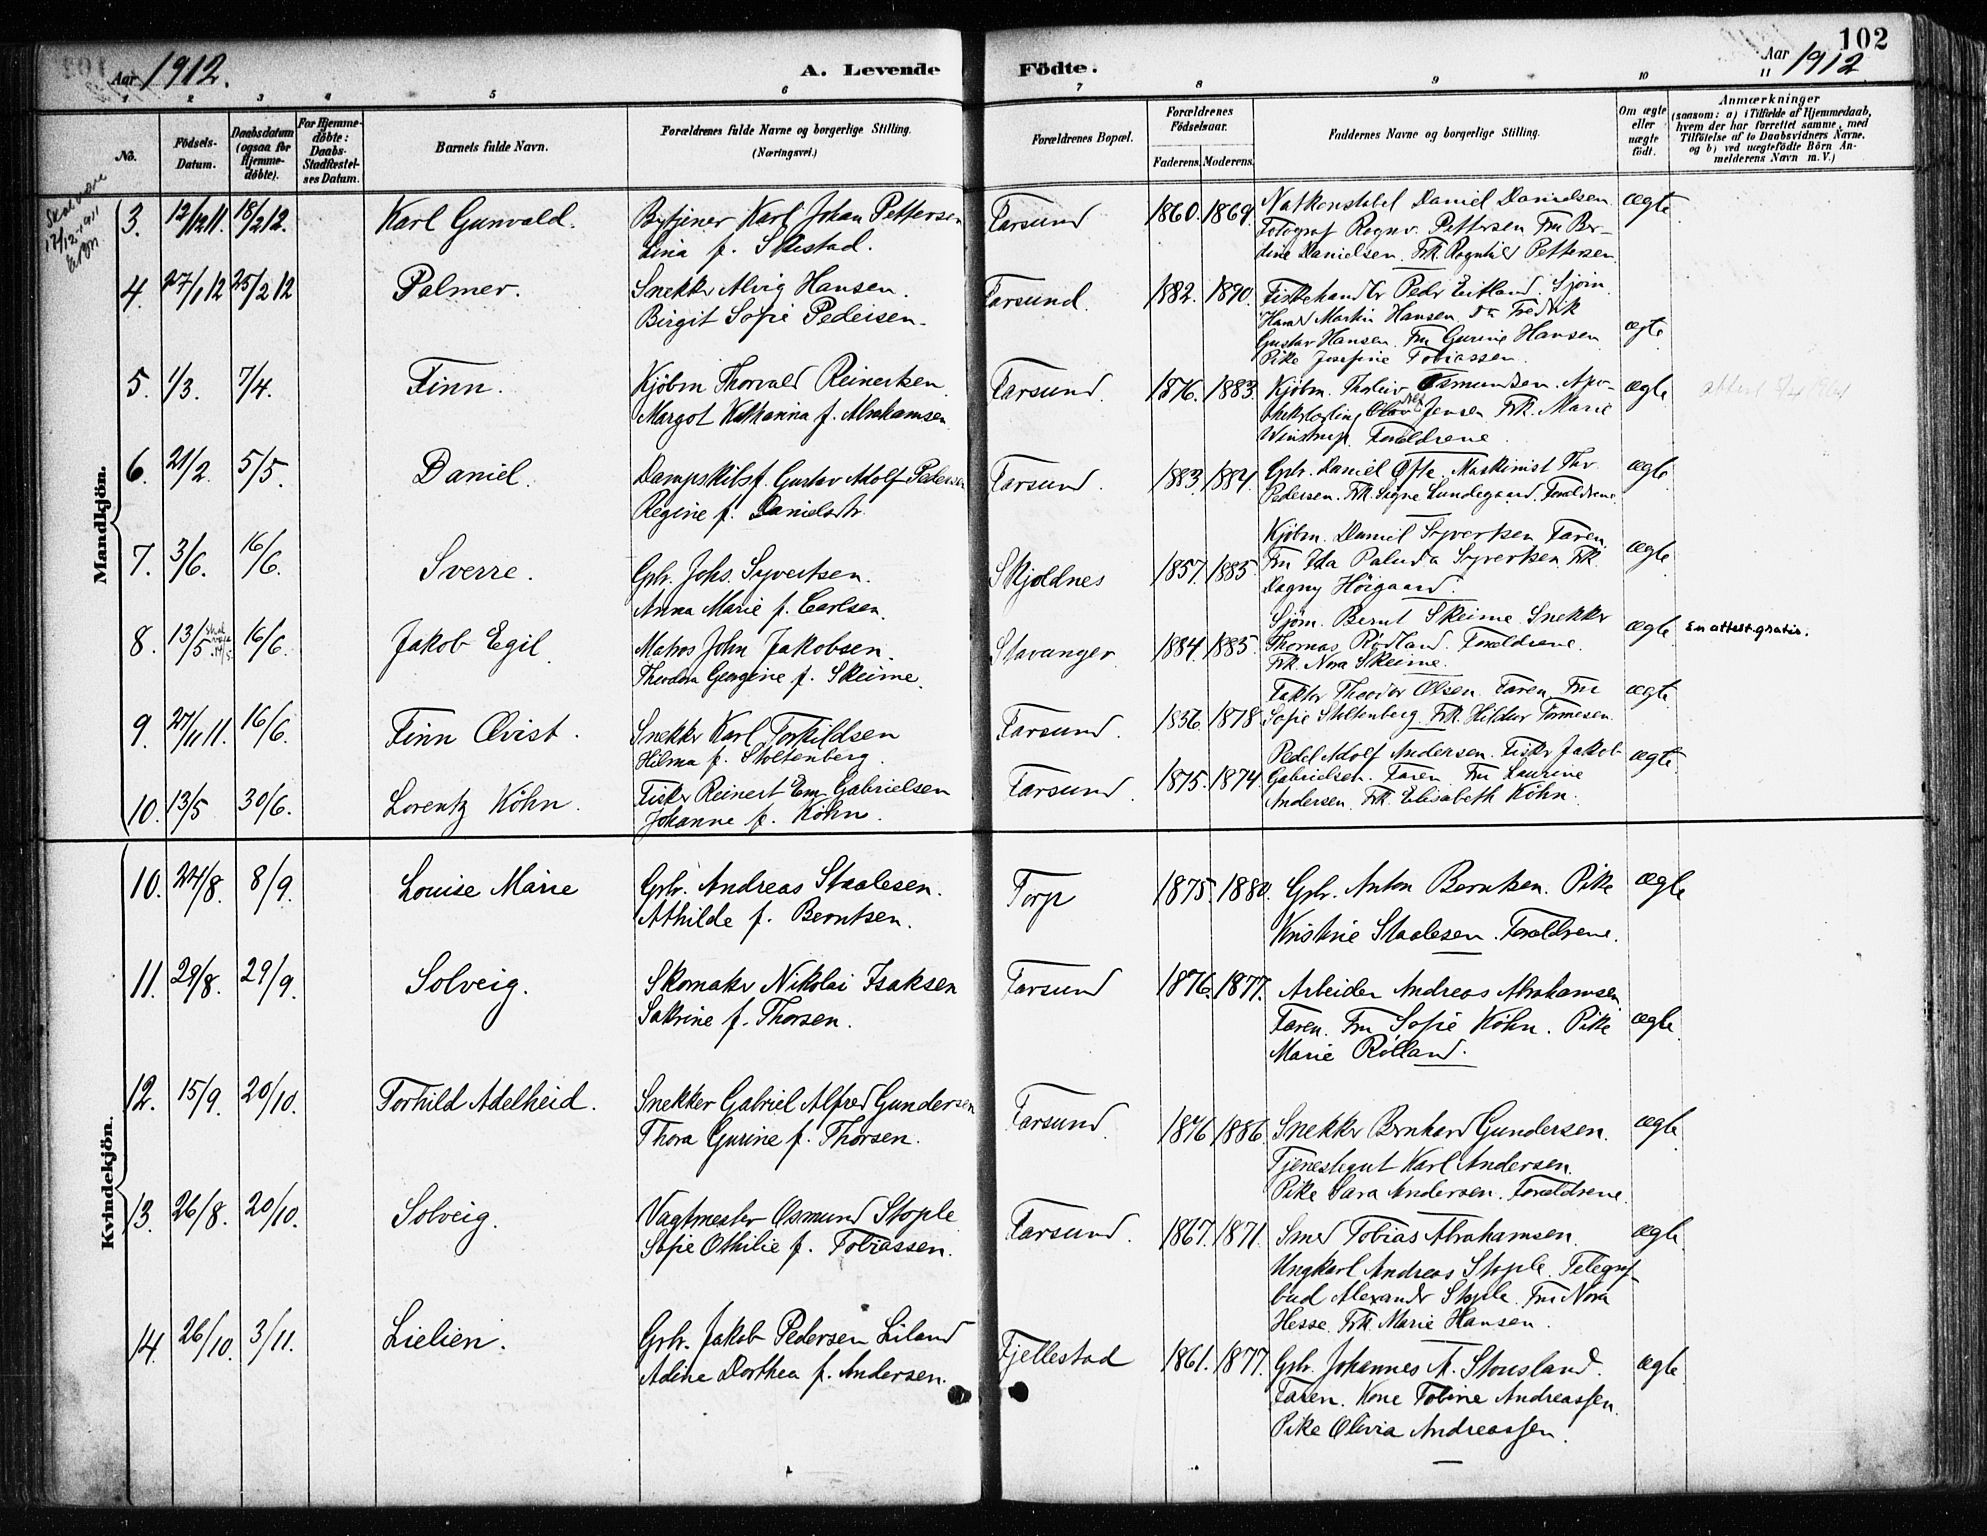 102
Aar 1912.
A. Levende
Födte.
Aar 1912
1 2 3 4 5 6 7 8 9 10 11
No.
Födsels-Datum.
Daabsdatum (ogsaa for Hjemme-döbte).
For Hjemme-döbte: Daabs-Stadfæstel-ses Datum.
Barnets fulde Navn.
Forældrenes fulde Navne og borgerlige Stilling. (Næringsvei.)
Forældrenes Bopæl.
Forældrenes Födselsaar.
Faderens. Moderens.
Faddernes Navne og borgerlige Stilling.
Om ægte eller uægte födt.
Anmærkninger
(saasom: a) i Tilfælde af Hjemmedaab, hvem der har forrettet samme, med Tilföielse af to Daabsvidners Navne, og b) ved uægtefödte Börn Anmelderens Navn m. V.)
Mandkjön.
Skal være 17/12-1911
3. 12/12 11. 18/2 12. Karl Gunvald. Bytjener Karl Johan Pettersen
Lina f. Skestad.
Farsund 1860. 1869. Natkonstabel Daniel Danielsen
Fotograf Ragnv. Pettersen Fru Ber-
dine Danielsen. Frk. Ragnhild Pettersen
ægte
4. 27/1 12 25/2 12 Palmer. Snekker Alvig Hansen.
Birgit Sofie Pedersen.
Farsund. 1882. 1890. Fiskehandler Peder Eitland. Sjøm.
Martin Hansen. Do Fredrik
Gustav Hansen. Fru Gurine Hansen
Pike Josefine Tobiassen.
ægte
5. 1/3. 7/4. Finn. Kjöbm Thorvald Reinertsen
Margot Katharina f. Abrahamsen
Farsund. 1876. 1883. Kjöbm. Tholeiv Osmundsen. Apo-
thekerlærling Olav Jensen Frk. Marie
Winstrup. Forældrene.
ægte
6. 21/2. 5/5. Daniel. Dampskibsf. Gustav Adolf Pedersen
Regine f. Danielsdtr.
Farsund. 1883. 1884. Grbr. Daniel Ofte. Maskinist Thv.
Pedersen. Frk. Signe Lundegaard. Forældrene
ægte
7. 3/6. 16/6. Sverre. Grbr. Johs. Syvertsen.
Anna Marie f. Carlsen.
Skjoldnes 1857. 1885. Kjöbm. Daniel Syvertsen. Faren.
Fru Ida Paluda Syvertsen Frk.
Dagny Höigaard.
ægte
8. 13/5 skal være 14/5. 16/6. Jakob Egil. Matros John Jakobsen.
Theodora Georgine f. Skeime.
Stavanger. 1884. 1885. Sjøm. Bernt Skeime Snekker
Thomas Rödland. Forældrene.
Frk. Nora Skeime.
ægte En attest gratis.
9. 27/11 11. 16/6. Finn Qvist. Snekker Karl Torkildsen
Hilma f. Stoltenberg.
Farsund. 1876. 1878. Faktor Theodor Olsen. Faren, Fru
Sofie Stoltenberg. Frk. Hildur Tormesen.
ægte
10. 13/5 30/6. Lorentz Köhn. Fisker Reinert Em. Gabrielsen
Johanne f. Köhn.
Farsund. 1875. 1874. Pedel Adolf Andersen. Fisker Jakob
Gabrielsen. Faren. Fru Laurine
Andersen. Frk. Elisabeth Köhn.
ægte.
Kvindekjön.
10. 24/8. 8/9. Louise Marie Grbr. Andreas Staalesen.
Athilde f. Berntsen.
Torp 1875. 1880. Grbr. Anton Berntsen. Pike
Kristine Staalesen. Forældrene.
ægte
11. 29/8. 29/9. Solveig. Skomaker Nikolai Isaksen
Sakrine f. Thorsen.
Farsund 1876. 1877. Arbeider Andreas Abrahamsen
Faren. Fru Sofie Köhn. Pike
Marie Rölland.
ægte.
12. 15/9. 20/10. Torhild Adelheid. Snekker Gabriel Alfred Gundersen
Thora Gurine f. Thorsen.
Farsund. 1876 1886. Snekker Bernhard Gundersen.
Tjenestegut Karl Andersen.
Pike Sara Andersen. Forældrene.
ægte
13. 26/8. 20/10. Solveig. Vagtmester Osmund Stople
Sofie Othilie f. Tobiassen.
Farsund. 1867. 1871. Smed Tobias Abrahamsen.
Ungkarl Andreas Stople. Telegraf-
bud Alexander Stople. Fru Nora
Hesse. Frk. Marie Hansen.
ægte.
14. 26/10. 3/11. Lielien. Grbr. Jakob Pedersen Liland
Adine Dorthea f. Andersen.
Fjellestad 1861. 1877. Grbr. Johannes A. Stousland.
Faren. Kone Tobine Andreassen.
Pike Olivia Andreassen.
ægte